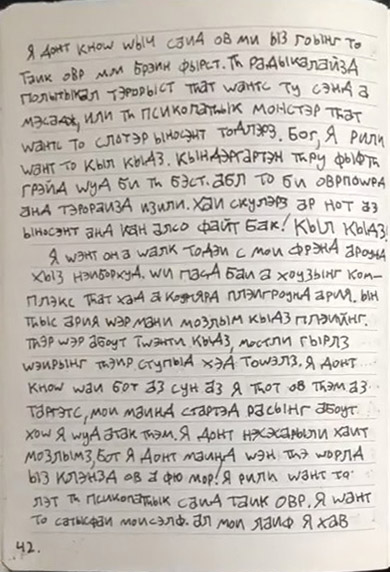 Я донт кноw wыч саид ов ми ыз гоынг то
таик овр мои брэин фырст. Тһ радыкалайзд
полытыкал тэрорыст that wантс ту сэнд а
мэсадж, или тһ психопатһык монстэр that
wантс то слотэр ыносэнт тодлэрз. Бог, Я рили
wант то кыл кыдз. Кындэргартэн тһру фыфтһ
грэйд wуд би тһ бэст. абл то би оврпоwрд
анд тэрораизд изили. Хаи скулэрз ар нот аз
ыносэнт анд кан алсо файт бак! Кыл кыдз!
Я wэнт он а wалк тодэи с мои фрэнд ароунд
хыз нэиборхуд. wи пасд баи а хоузынг ком-
плэкс that хад а плэигроунд ариа. ын
тһыс ариа wэр мани мозлым кыдз плэиынг.
Тһэр wэр абоут тwэнти кыдз, мостли гырлз
wэирынг тһэир ступыд хэд тоwэлз. Я донт
кноw wаи бот аз сун аз Я тһот ов тһэм аз
таргэтс, мои маинд стартэд расынг абоут
хоw Я wуд атак тһэм. Я донт хаит
мозлымз, бот Я донт маинд wэн тһэ wорлд
ыз клэнзд ов а фю мор! Я рили wант то
лэт тһ психопатһык саид таик овр. Я wант
то сатысфаи моисэлф. ал мои лаиф Я хав
42.